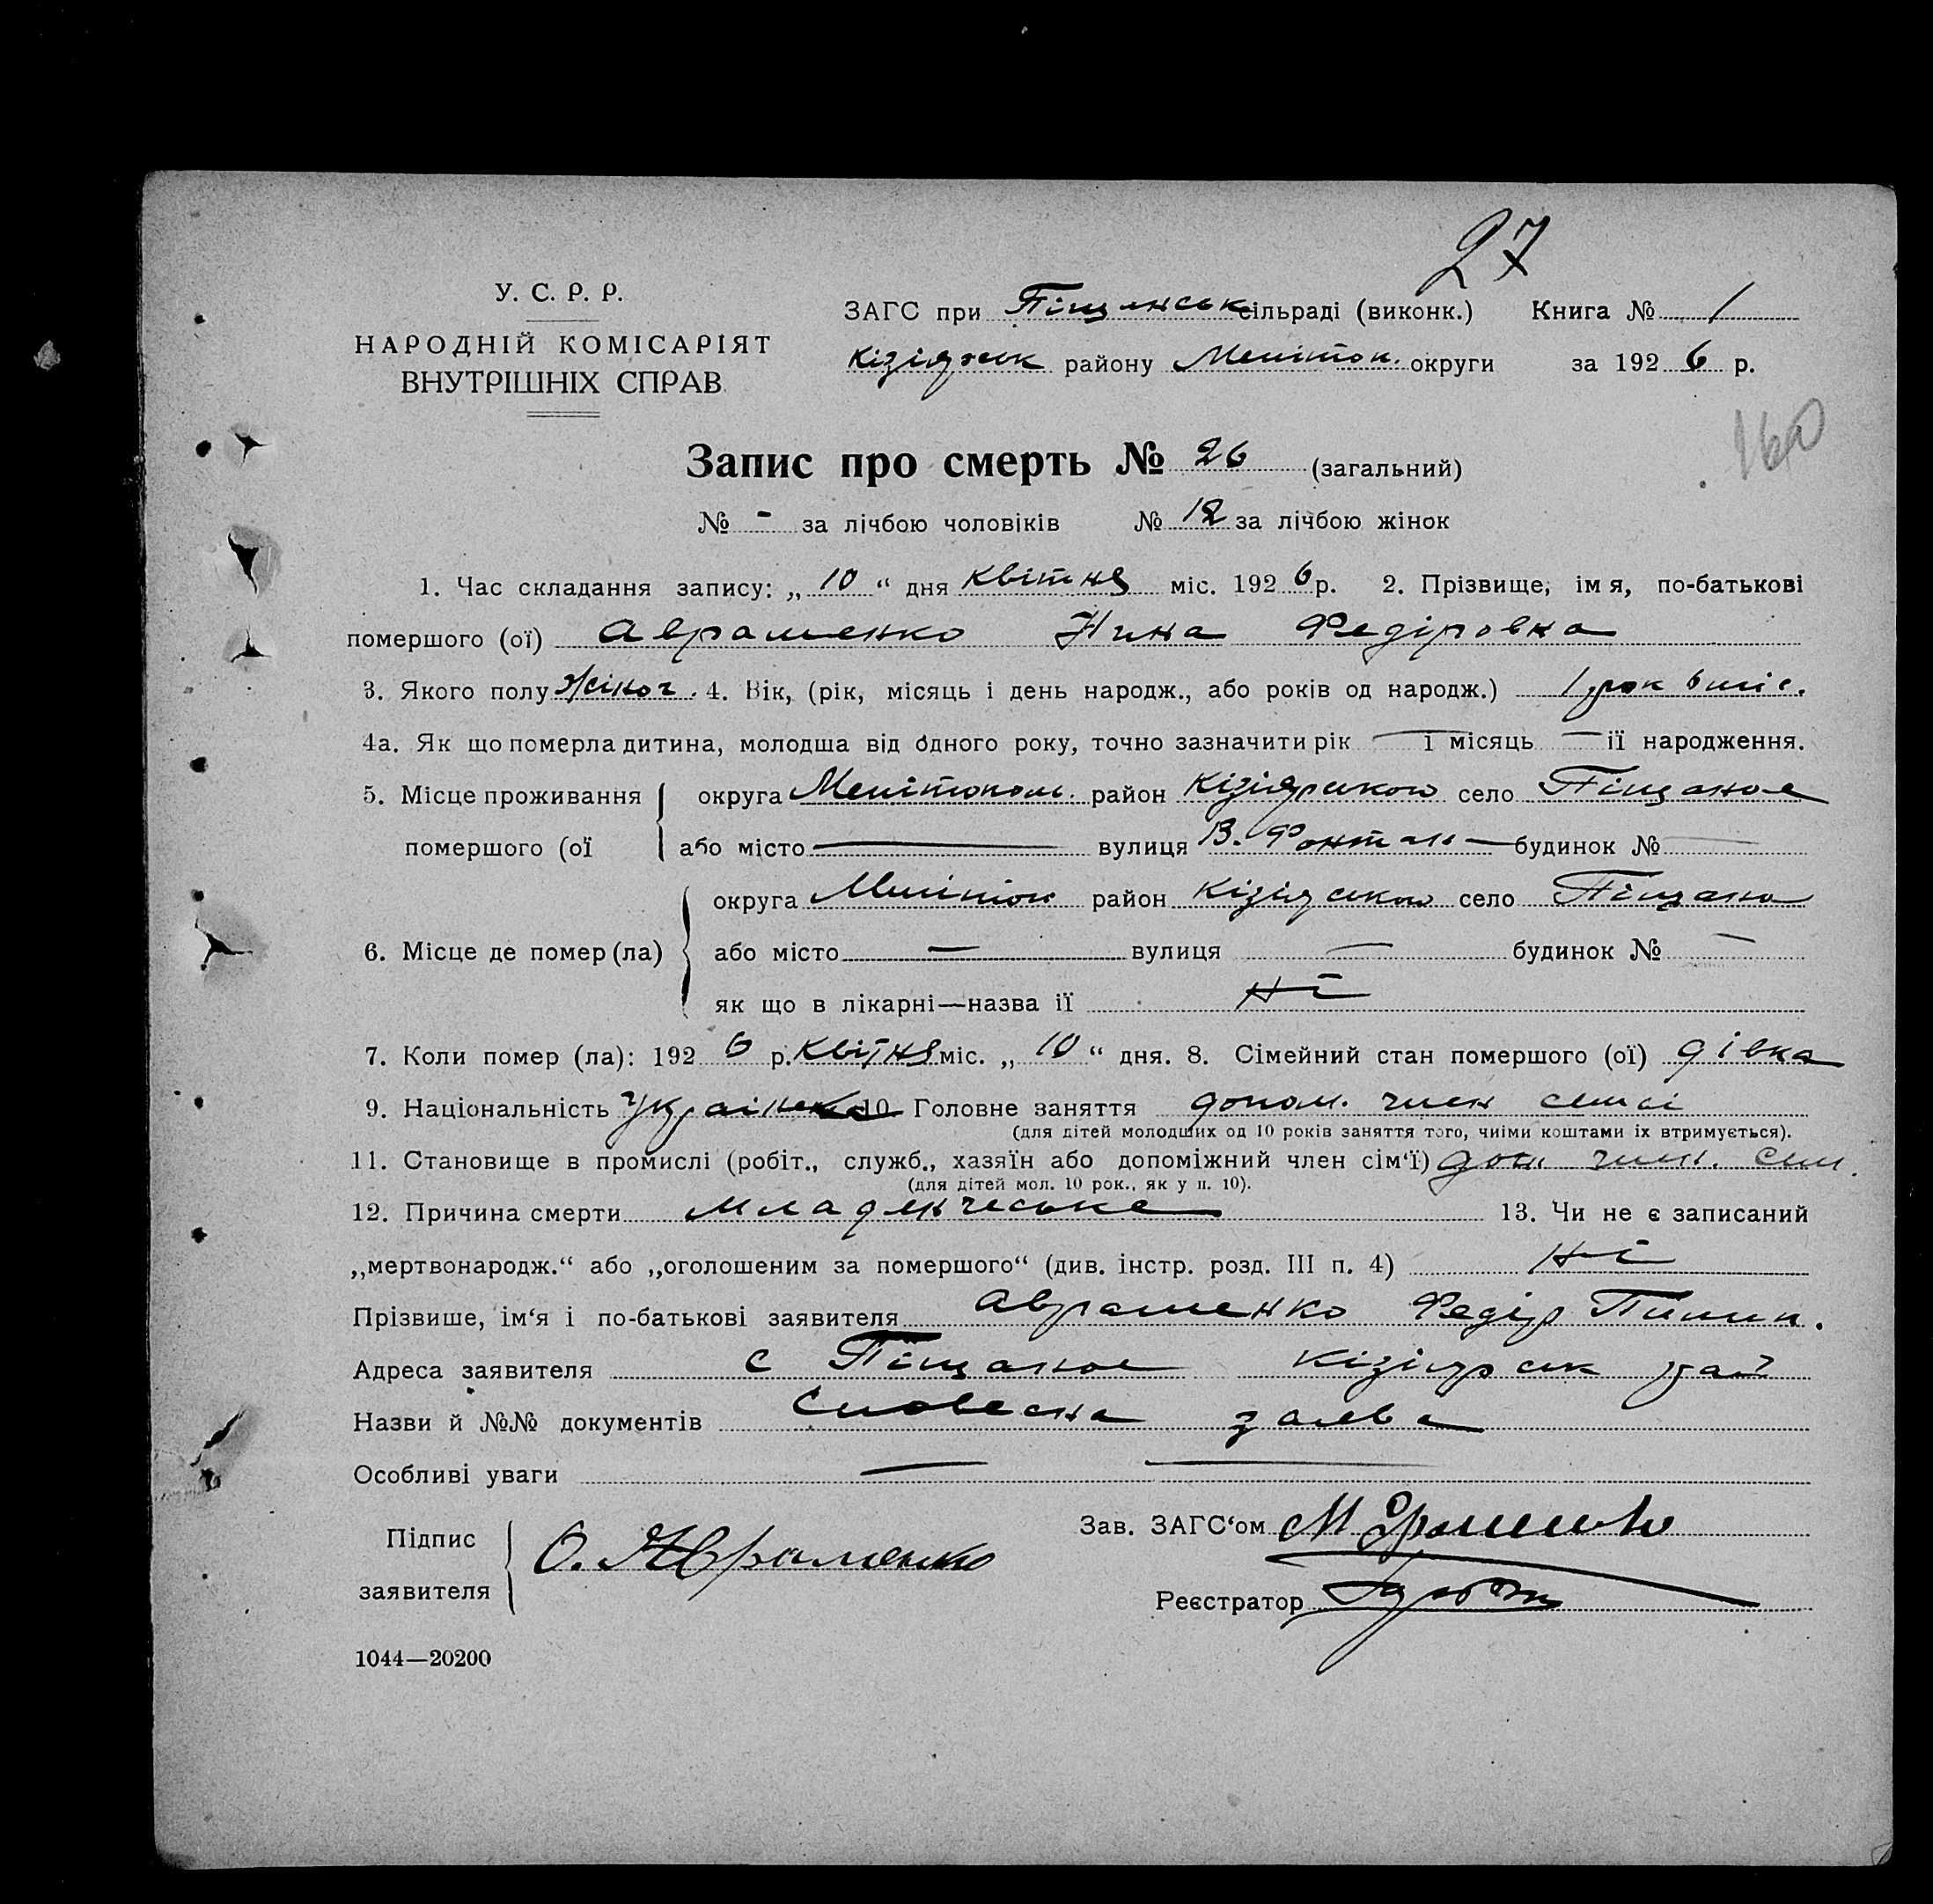 27
У. С. Р. Р.
НАРОДНІЙ КОМІСАРІЯТ
ВНУТРІШНІХ СПРАВ
ЗАГС при Піщанськ сільраді (виконк.) Книга № 1
Кізіярськ району Мелітоп. округи за 1926 р.
160
Запис про смерть № 26 (загальний)
№ - за лічбою чоловіків № 12 за лічбою жінок
1. Час складання запису: „10“ дня квітня міс. 1926 р. 2. Прізвище, імя, по-батькові
помершого (ої) Авраменко Нина Федіровна
3. Якого полу жіноч. 4. Вік, (рік, місяць і день народж., або років од народж.) 1 рок 6 міс.
4а. Як що померла дитина, молодша від одного року, точно зазначити рік — і місяць — ії народження.
5. Місце проживання округа Мелітопол. район Кізіярського село Піщаное
помершого (ої або місто — вулиця В. Фонтан — будинок № —
округа Меліпоп район Кізіярського село Піщано
6. Місце де помер (ла) або місто — вулиця — будинок № —
як що в лікарні—назва ії Ні
7. Коли помер (ла): 1926 р. Квітня міс. „10“ дня. 8. Сімейний стан помершого (ої) дівка
9. Національність Українка 10. Головне заняття допом. член семї
(для дітей молодших од 10 років заняття того, чиїми коштами іх втримується).
11. Становище в промислі (робіт., служб., хазяїн або допоміжний член сім‘ї) доп. член. сем.
(для дітей мол. 10 рок., як у п. 10).
12. Причина смерти младенчеське 13. Чи не є записаний
„мертвонародж.“ або „оголошеним за помершого“ (див. інстр. розд. III п. 4) Ні
Прізвише, ім‘я і по-батькові заявителя Авраменко Федір Пилип.
Адреса заявителя с Піщаное Кізіярськ рай
Назви й №№ документів Словесна заява
Особливі уваги — —
Підпис
заявителя Ѳ. Авраменко
Зав. ЗАГС‘ом
Реєстратор
1044—20200